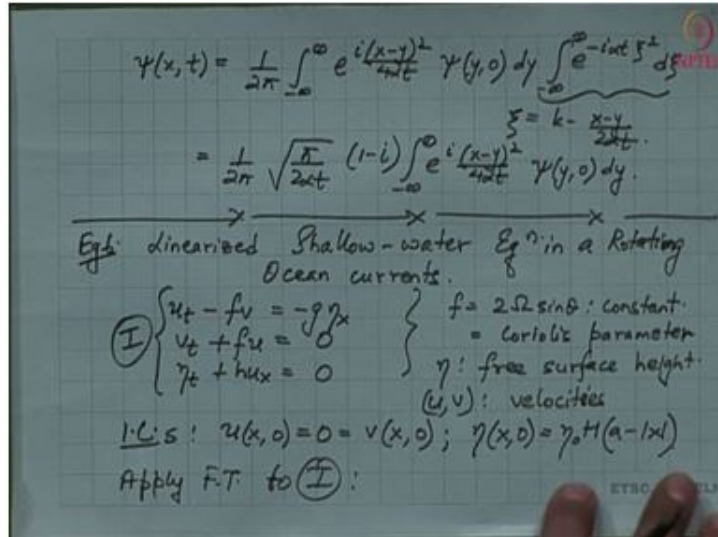 ψ(x,t) = 1/2π ∫_{-∞}^{∞} e^{i(x-y)²/4αt} ψ(y,0) dy ∫_{-∞}^{∞} e^{-iαt ξ²} dξ
ξ = k - (x-y)/2αt.
= 1/2π √(π/2αt) (1-i) ∫_{-∞}^{∞} e^{i(x-y)²/4αt} ψ(y,0) dy.
Eg6: Linearized Shallow-water Eqⁿ. in a Rotating
Ocean currents.
I { u_t - fv = -gη_x } f = 2Ω sinθ : constant.
v_t + fu = 0 = Coriolis parameter
η_t + hu_x = 0 η : free surface height.
(u,v) : velocities
I.C.s : u(x,0) = 0 = v(x,0) ; η(x,0) = η₀ H(a-|x|)
Apply F.T. to I :